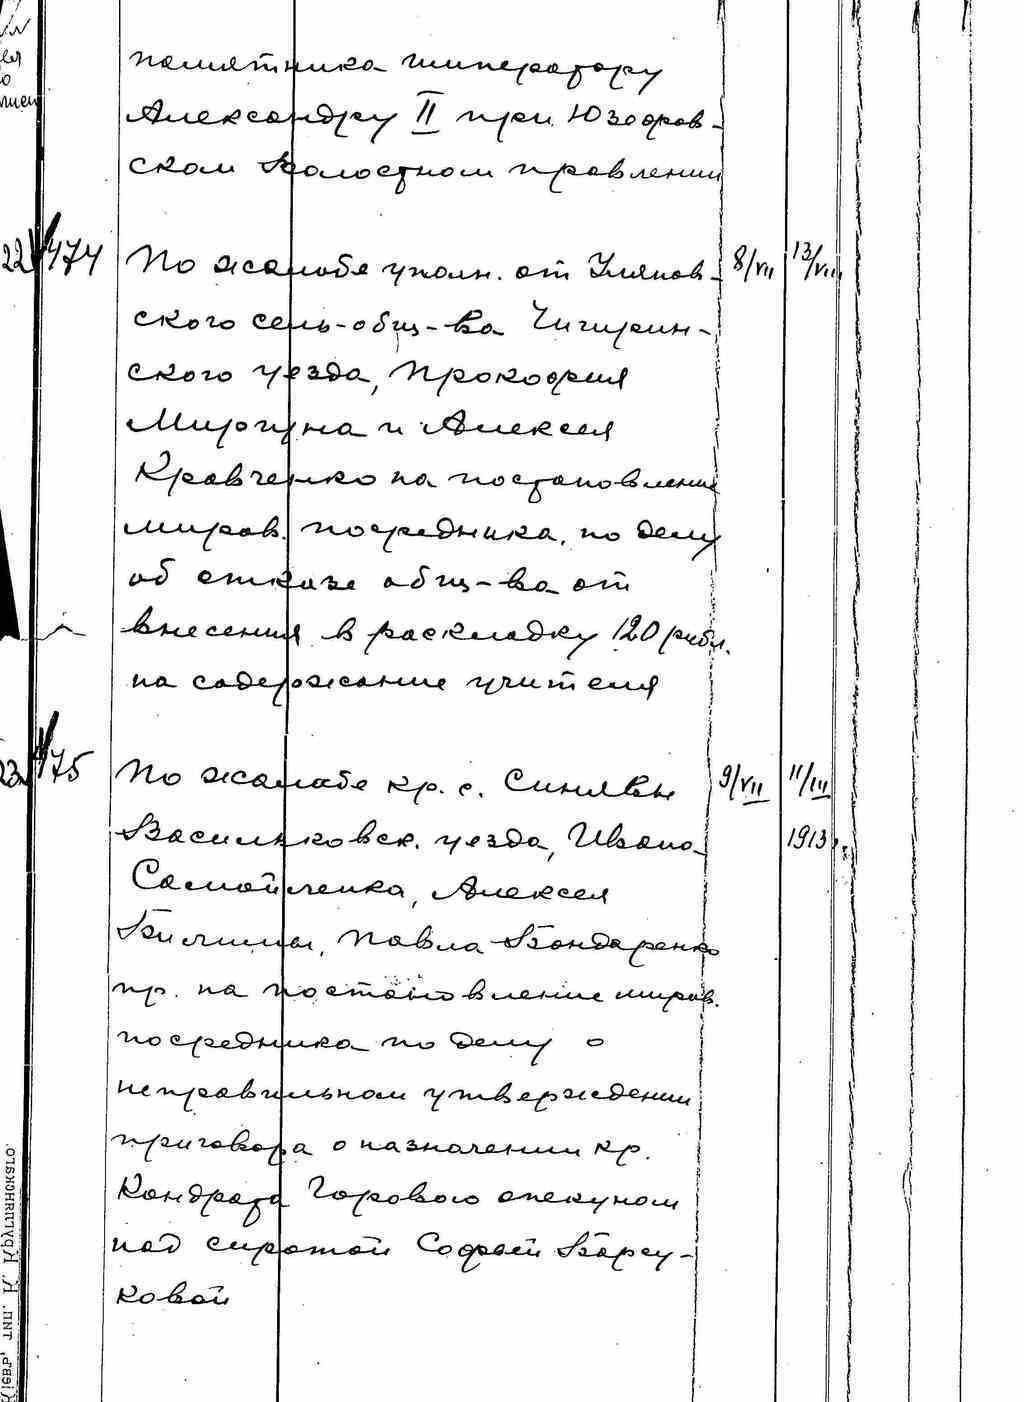 памятника императору
Александру II при Юзефов-
ском волостном правлении
22 474 По жалобе уполн. от Улянов- 8/VII 13/VIII
ского сель-общ-ва Чигирин-
ского уезда, Прокофия
Миргуна и Алексея
Кравченко на постановление
миров. посредника, по делу
об отказе общ-ва от
внесения в раскладку 120 рубл.
на содержание учителя
23 475 По жалобе кр. с. Синявы 9/VII 11/III
Васильковск. уезда, Ивана 1913 г.
Самойленка, Алексея
Павла Бондаренко
пр. на постановление миров.
посредника по делу о
неправильном утверждении
приговора о назначении кр.
Кондрата Горового опекуном
над сиротой Софьей Барсу-
ковой
Кіевъ, тип. К. Круглянскаго.